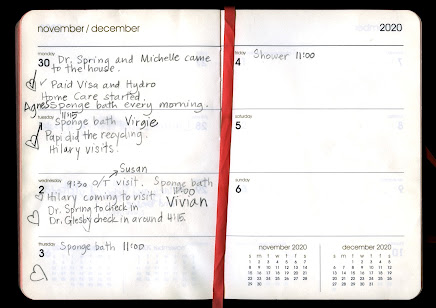 november / december
monday
30
Dr. Spring and Michelle came
to the house.
✓ Paid Visa and Hydro
Home Care started.
Agnes Sponge bath every morning.
tuesday
1
11:15
Sponge bath Virgie
Papi did the recycling.
Hilary visits.
Susan
wednesday
2
9:30 O/T visit. Sponge bath
11:00
Hilary coming to visit Vivian
Dr. Spring to check in
Dr. Glesby check in around 4:15
thursday
3
Sponge bath 11:00
2020
friday
4
Shower 11:00
saturday
5
sunday
6
november 2020
s m t w t f s
1 2 3 4 5 6 7
8 9 10 11 12 13 14
15 16 17 18 19 20 21
22 23 24 25 26 27 28
29 30
december 2020
s m t w t f s
1 2 3 4 5
6 7 8 9 10 11 12
13 14 15 16 17 18 19
20 21 22 23 24 25 26
27 28 29 30 31